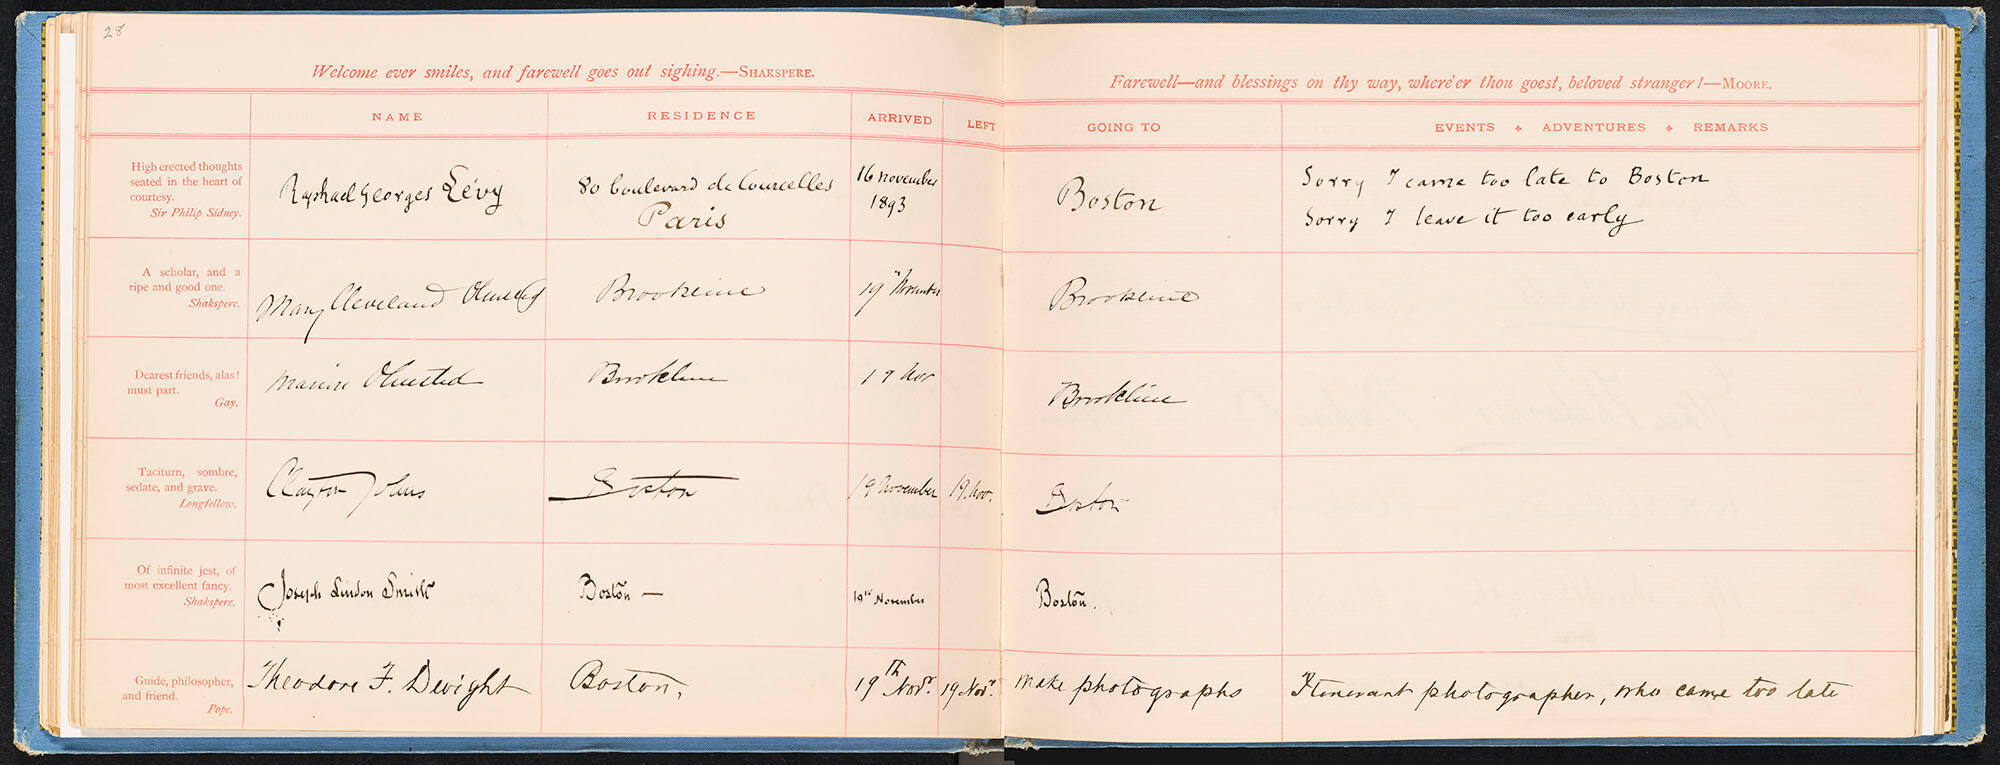 28
Welcome ever smiles, and farewell goes out sighing.—SHAKSPERE.
Farewell—and blessings on thy way, where'er thou goest, beloved stranger!—MOORE.
NAME RESIDENCE ARRIVED LEFT GOING TO EVENTS ADVENTURES REMARKS
High erected thoughts
seated in the heart of
courtesy.
Sir Philip Sidney.
Raphael Georges Lévy
80 boulevard de Courcelles
Paris
16 november
1893
Boston
Sorry I came too late to Boston
Sorry I leave it too early
A scholar, and a
ripe and good one.
Shakspere.
Mary Cleveland Olmsted
Brookline
19" November
Brookline
Dearest friends, alas!
must part.
Gay.
Olmsted
Brookline
Nov
Brookline
Taciturn, sombre,
sedate, and grave.
Longfellow.
Clayton Johns
Boston
19 November
19. Nov.
Boston
Of infinite jest, of
most excellent fancy.
Shakspere.
Joseph Lindon Smith
Boston —
19th November
Boston.
Guide, philosopher,
and friend.
Pope.
Theodore F. Dwight
Boston,
19th Novr.
19 Novr.
make photographs
Itinerant photographer, who came too late